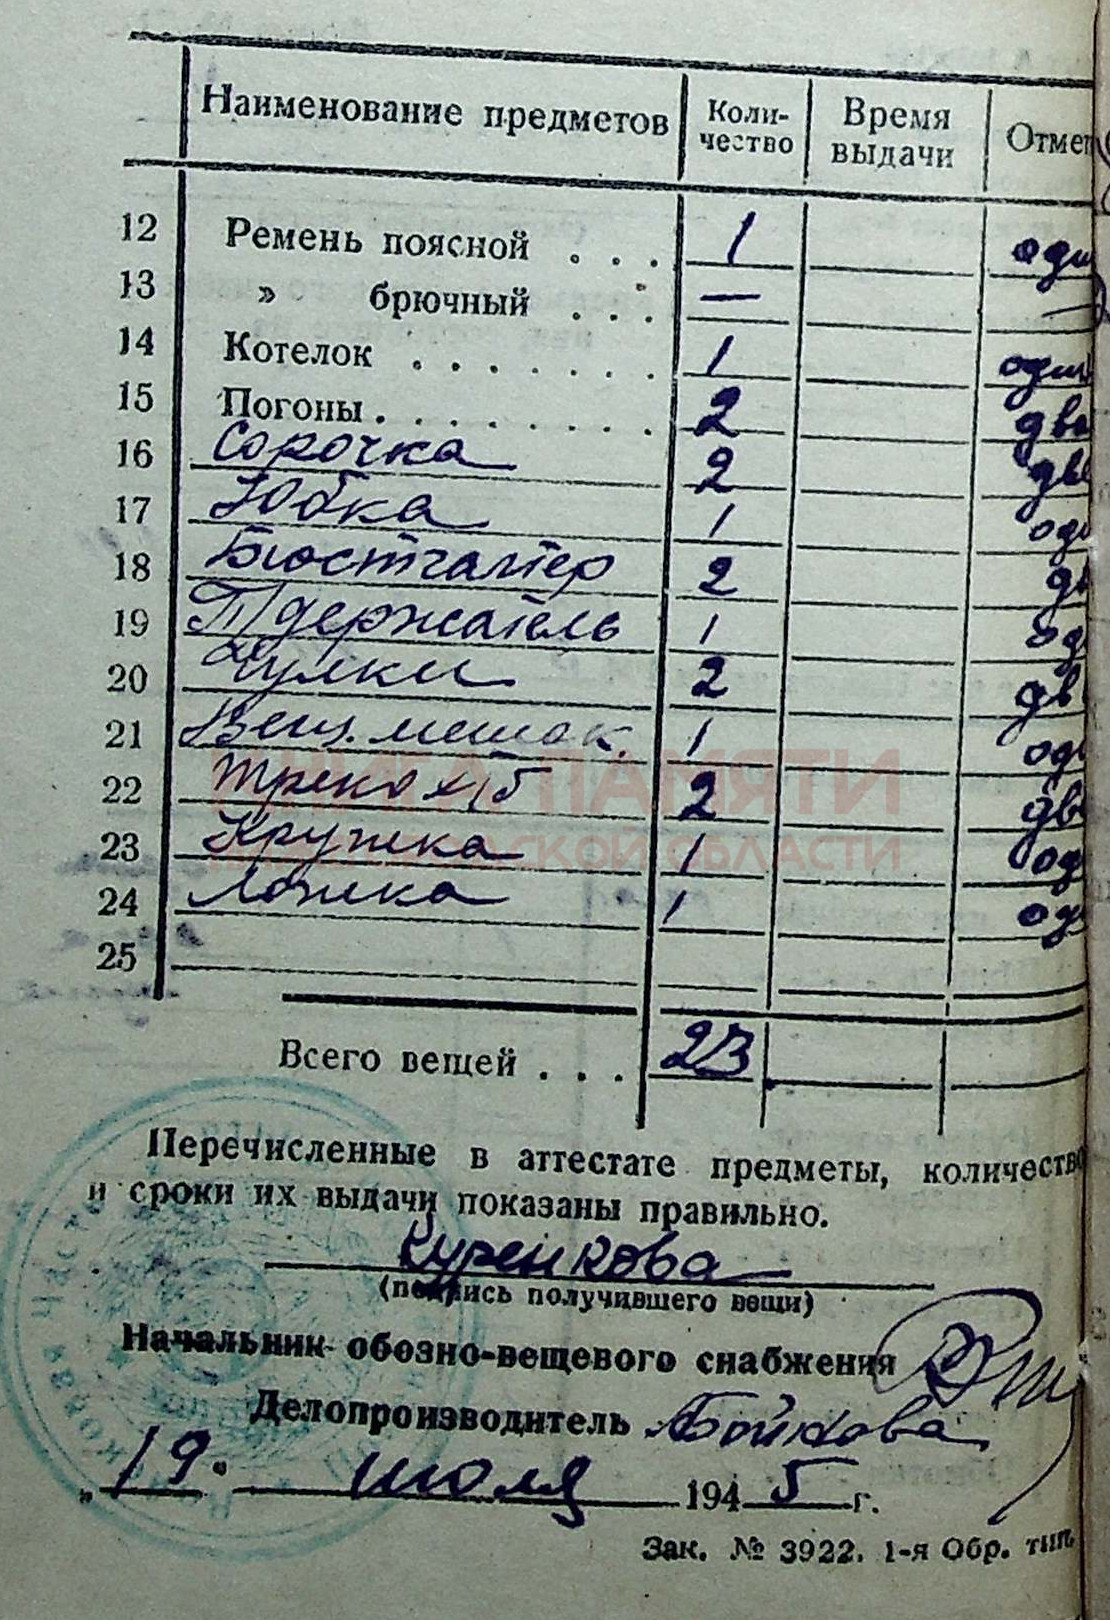 Наименование предметов Коли-чество Время выдачи Отмет
12 Ремень поясной . . . 1 один
13 » брючный . . . — —
14 Котелок . . . . . . . 1 один
15 Погоны . . . . . . . . 2 два
16 Сорочка 2 две
17 Юбка 1 одн
18 Бюстгалтер 2 дв
19 П/держатель 1 од
20 Чулки 2 дв
21 Вещ. мешок. 1 од
22 Трико х/б 2 две
23 Кружка 1 од
24 Ложка 1 од
25
Всего вещей . . . 23
КНИГА ПАМЯТИ
ОБЛАСТИ
Перечисленные в аттестате предметы, количество
и сроки их выдачи показаны правильно.
Куренкова
(подпись получившего вещи)
Начальник обозно-вещевого снабжения
Делопроизводитель Бойкова
„19. июля 1945 г.
Зак. № 3922. 1-я Обр. тип.